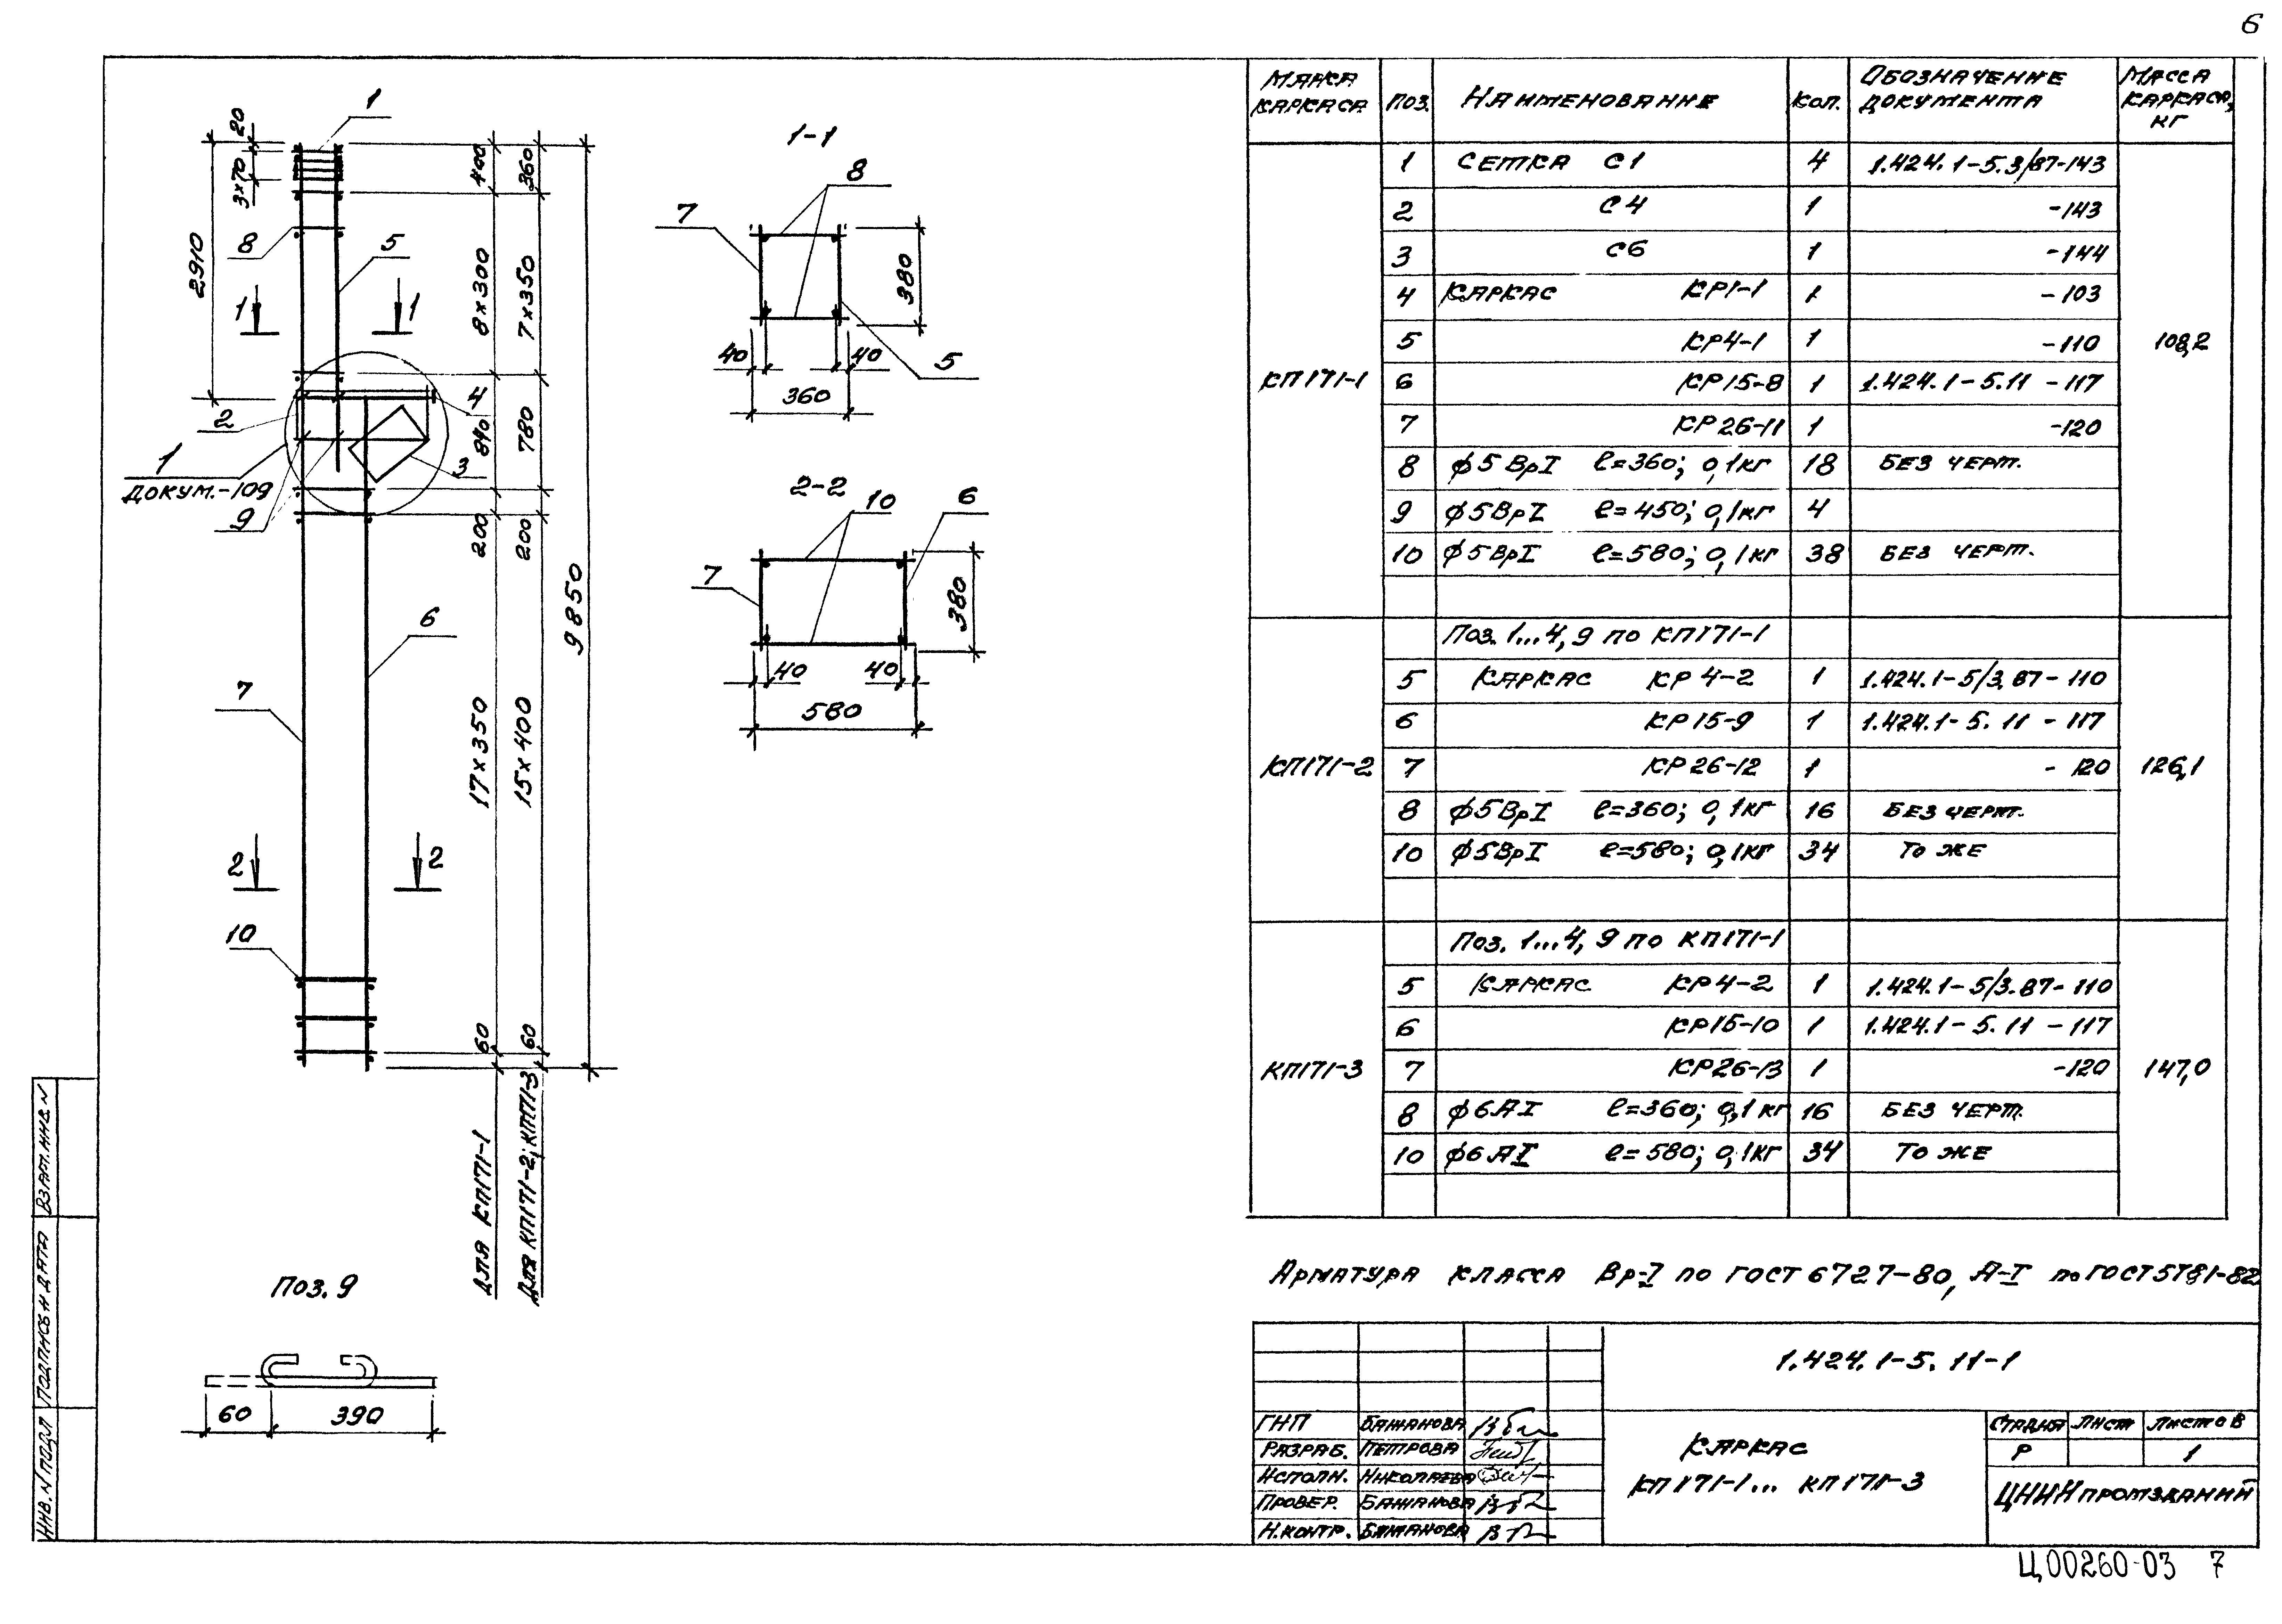 6
1
20
3×70
2910
8
5
1
1
2
4
3
1
ДОКУМ.-109
9
6
7
2
2
10
400
8×300
840
200
17×350
60
ДЛЯ КП171-1
360
7×350
780
200
15×400
60
ДЛЯ КП171-2; КП171-3
9850
1-1
8
7
380
40
40
5
360
2-2
10
6
7
380
40
40
580
ПОЗ. 9
60
390
МАРКА КАРКАСА ПОЗ. НАИМЕНОВАНИЕ КОЛ. ОБОЗНАЧЕНИЕ ДОКУМЕНТА МАССА КАРКАСА, КГ
КП171-1 108,2
1 СЕТКА С1 4 1.424.1-5.3/87-143
2 С4 1 -143
3 С6 1 -144
4 КАРКАС КР1-1 1 -103
5 КР4-1 1 -110
6 КР15-8 1 1.424.1-5.11 -117
7 КР26-11 1 -120
8 ϕ5ВрI ℓ=360; 0,1кг 18 БЕЗ ЧЕРТ.
9 ϕ5ВрI ℓ=450; 0,1кг 4
10 ϕ5ВрI ℓ=580; 0,1кг 38 БЕЗ ЧЕРТ.
КП171-2 126,1
ПОЗ. 1...4, 9 ПО КП171-1
5 КАРКАС КР4-2 1 1.424.1-5/3.87-110
6 КР15-9 1 1.424.1-5.11 -117
7 КР26-12 1 -120
8 ϕ5ВрI ℓ=360; 0,1кг 16 БЕЗ ЧЕРТ.
10 ϕ5ВрI ℓ=580; 0,1кг 34 ТО ЖЕ
КП171-3 147,0
ПОЗ. 1...4, 9 ПО КП171-1
5 КАРКАС КР4-2 1 1.424.1-5/3.87-110
6 КР15-10 1 1.424.1-5.11 -117
7 КР26-13 1 -120
8 ϕ6АI ℓ=360; 0,1кг 16 БЕЗ ЧЕРТ.
10 ϕ6АI ℓ=580; 0,1кг 34 ТО ЖЕ
АРМАТУРА КЛАССА Вр-I ПО ГОСТ 6727-80, А-I ПО ГОСТ 5781-82
1.424.1-5.11-1
ГИП БАЖАНОВА
РАЗРАБ. ПЕТРОВА
ИСПОЛН. НИКОЛАЕВА
ПРОВЕР. БАЖАНОВА
Н.КОНТР. БАЖАНОВА
КАРКАС
КП171-1... КП171-3
СТАДИЯ ЛИСТ ЛИСТОВ
Р 1
ЦНИИПРОМЗДАНИЙ
ИНВ. N ПОДЛ ПОДПИСЬ И ДАТА ВЗАМ. ИНВ. N
Ц00260-03 7